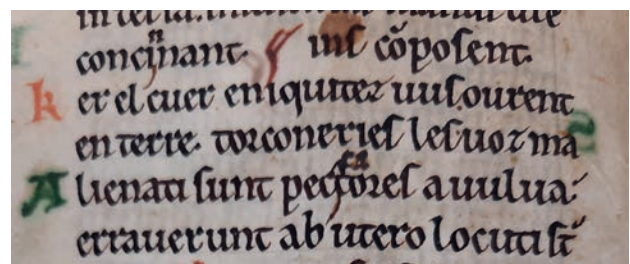 concinant. ins cōposent.
Ker el cuer eniquitez uus ourent
en terre. torconeries les uoz ma
Alienati sunt peccatores a uulua:
errauerunt ab utero locuti st̄